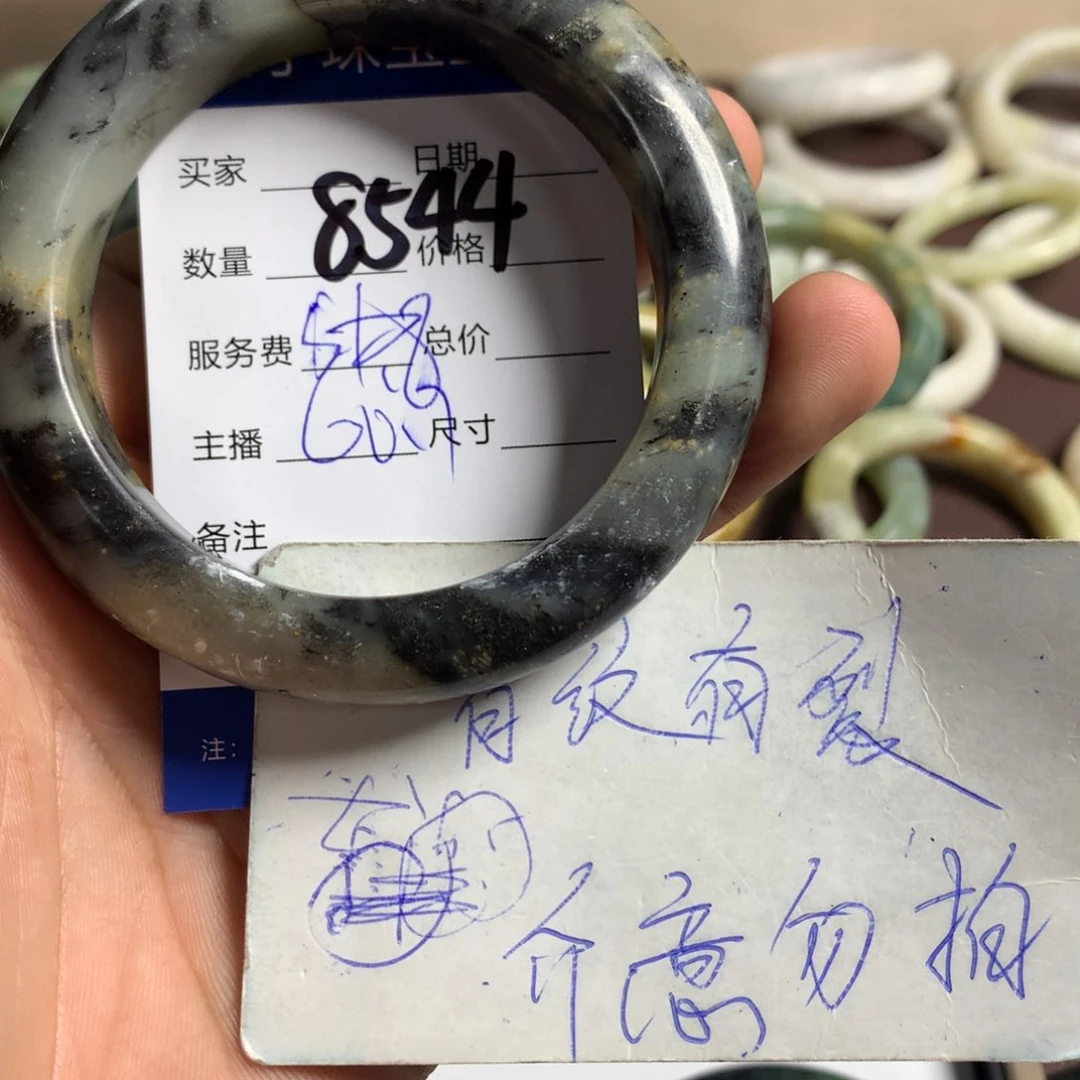 珠宝
买家 日期
8544
数量 价格
服务费 总价
主播 尺寸
备注
注:
有纹有裂
介意勿拍